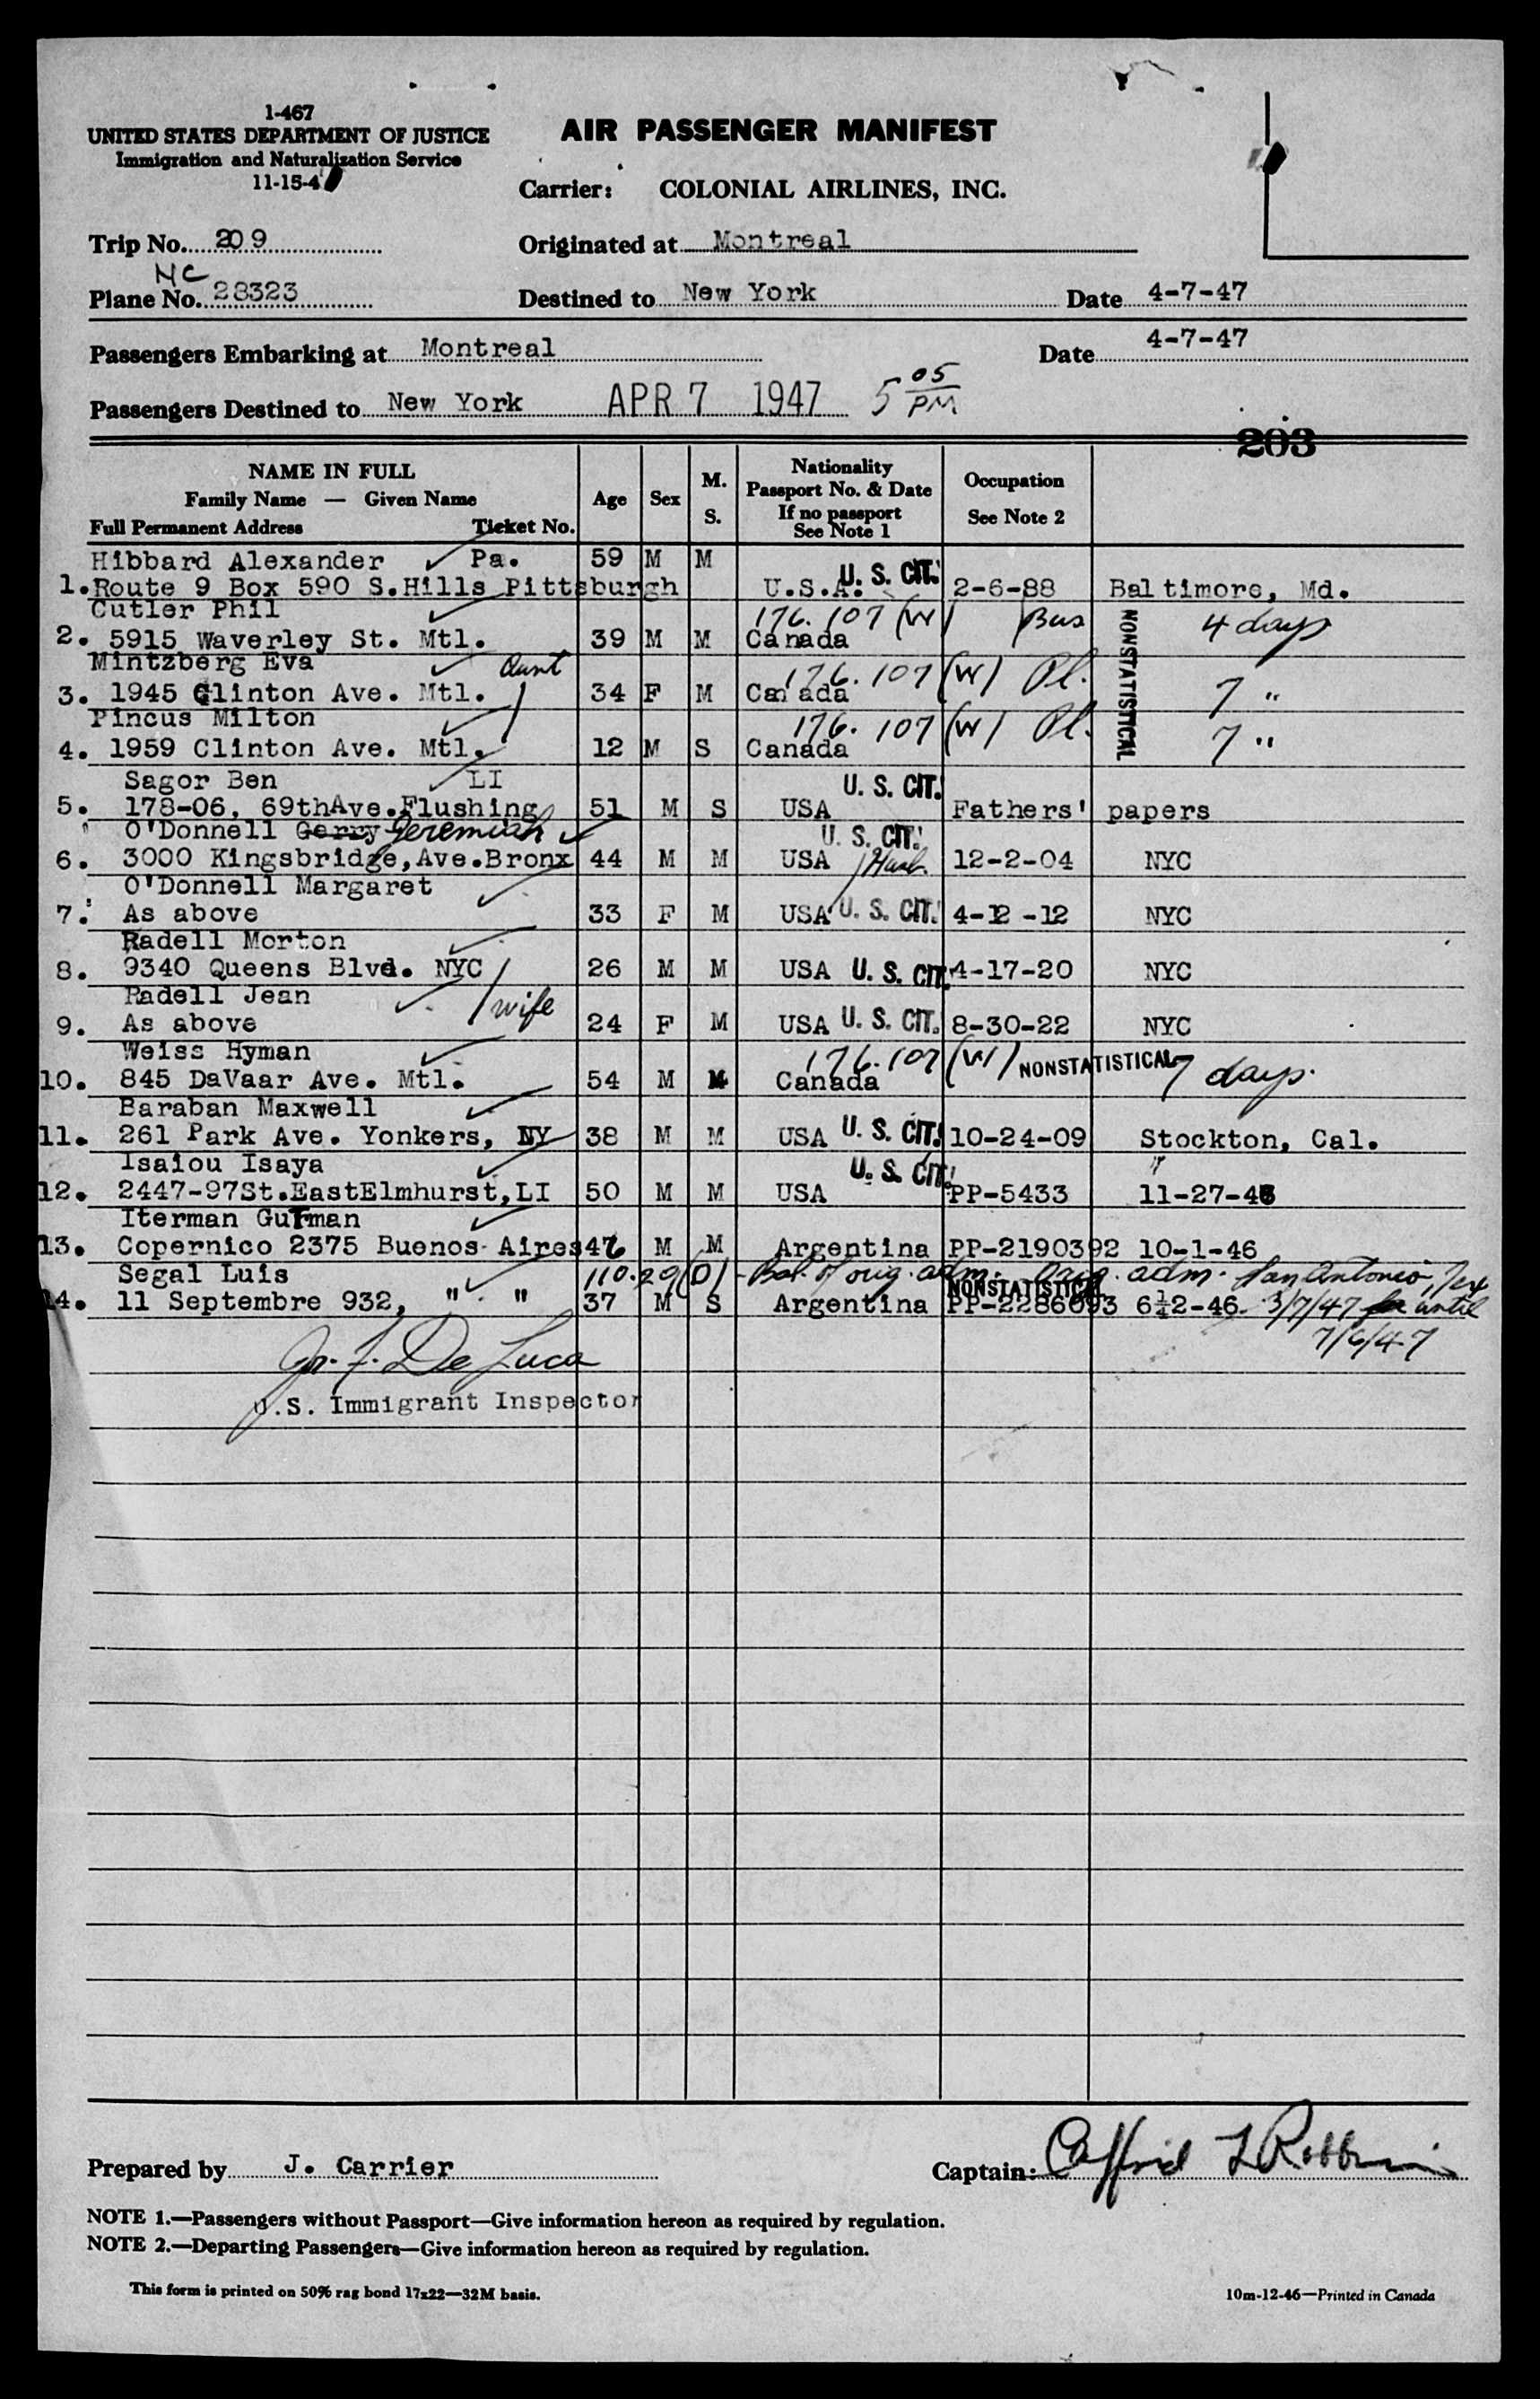 1-467
UNITED STATES DEPARTMENT OF JUSTICE
Immigration and Naturalization Service
11-15-4
AIR PASSENGER MANIFEST
Carrier: COLONIAL AIRLINES, INC.
Trip No. 209
Originated at Montreal
NC
Plane No. 28323
Destined to New York
Date 4-7-47
Passengers Embarking at Montreal
Date 4-7-47
Passengers Destined to New York APR 7 1947 5 05 PM
203
NAME IN FULL
Family Name — Given Name
Full Permanent Address Ticket No.
Age
Sex
M.
S.
Nationality
Passport No. & Date
If no passport
See Note 1
Occupation
See Note 2
Hibbard Alexander Pa. 59 M M
1. Route 9 Box 590 S.Hills Pittsburgh U.S.A. U. S. CIT. 2-6-88 Baltimore, Md.
Cutler Phil 176.107 (W) Bus 4 days
2. 5915 Waverley St. Mtl. 39 M M Canada
NONSTATISTICAL
Mintzberg Eva Aunt 176.107 (W) Pl.
3. 1945 Clinton Ave. Mtl. 34 F M Canada 7 "
Pincus Milton 176.107 (W) Pl.
4. 1959 Clinton Ave. Mtl. 12 M S Canada 7 "
Sagor Ben LI U. S. CIT.
5. 178-06, 69thAve.Flushing 51 M S USA Fathers' papers
O'Donnell Gerry Jeremiah U. S. CIT.
6. 3000 Kingsbridge,Ave.Bronx 44 M M USA Husb. 12-2-04 NYC
O'Donnell Margaret
7. As above 33 F M USA U. S. CIT. 4-12-12 NYC
Radell Morton
8. 9340 Queens Blvd. NYC 26 M M USA U. S. CIT. 4-17-20 NYC
Radell Jean wife
9. As above 24 F M USA U. S. CIT. 8-30-22 NYC
Weiss Hyman 176.107 (W) NONSTATISTICAL 7 days.
10. 845 DaVaar Ave. Mtl. 54 M M Canada
Baraban Maxwell
11. 261 Park Ave. Yonkers, NY 38 M M USA U. S. CIT. 10-24-09 Stockton, Cal.
Isaiou Isaya U. S. CIT. "
12. 2447-97St.EastElmhurst,LI 50 M M USA PP-5433 11-27-46
Iterman Gutman
13. Copernico 2375 Buenos Aires 46 M M Argentina PP-2190392 10-1-46
Segal Luis 110.29(D) - Bal. of orig. adm. orig. adm. San Antonio, Tex
NONSTATISTICAL
14. 11 Septembre 932, " " 37 M S Argentina PP-2286093 6-12-46 3/7/47 for until
7/6/47
De Luca
U.S. Immigrant Inspector
Prepared by J. Carrier
Captain: L Robbins
NOTE 1.—Passengers without Passport—Give information hereon as required by regulation.
NOTE 2.—Departing Passengers—Give information hereon as required by regulation.
This form is printed on 50% rag bond 17x22—32M basis.
10m-12-46—Printed in Canada